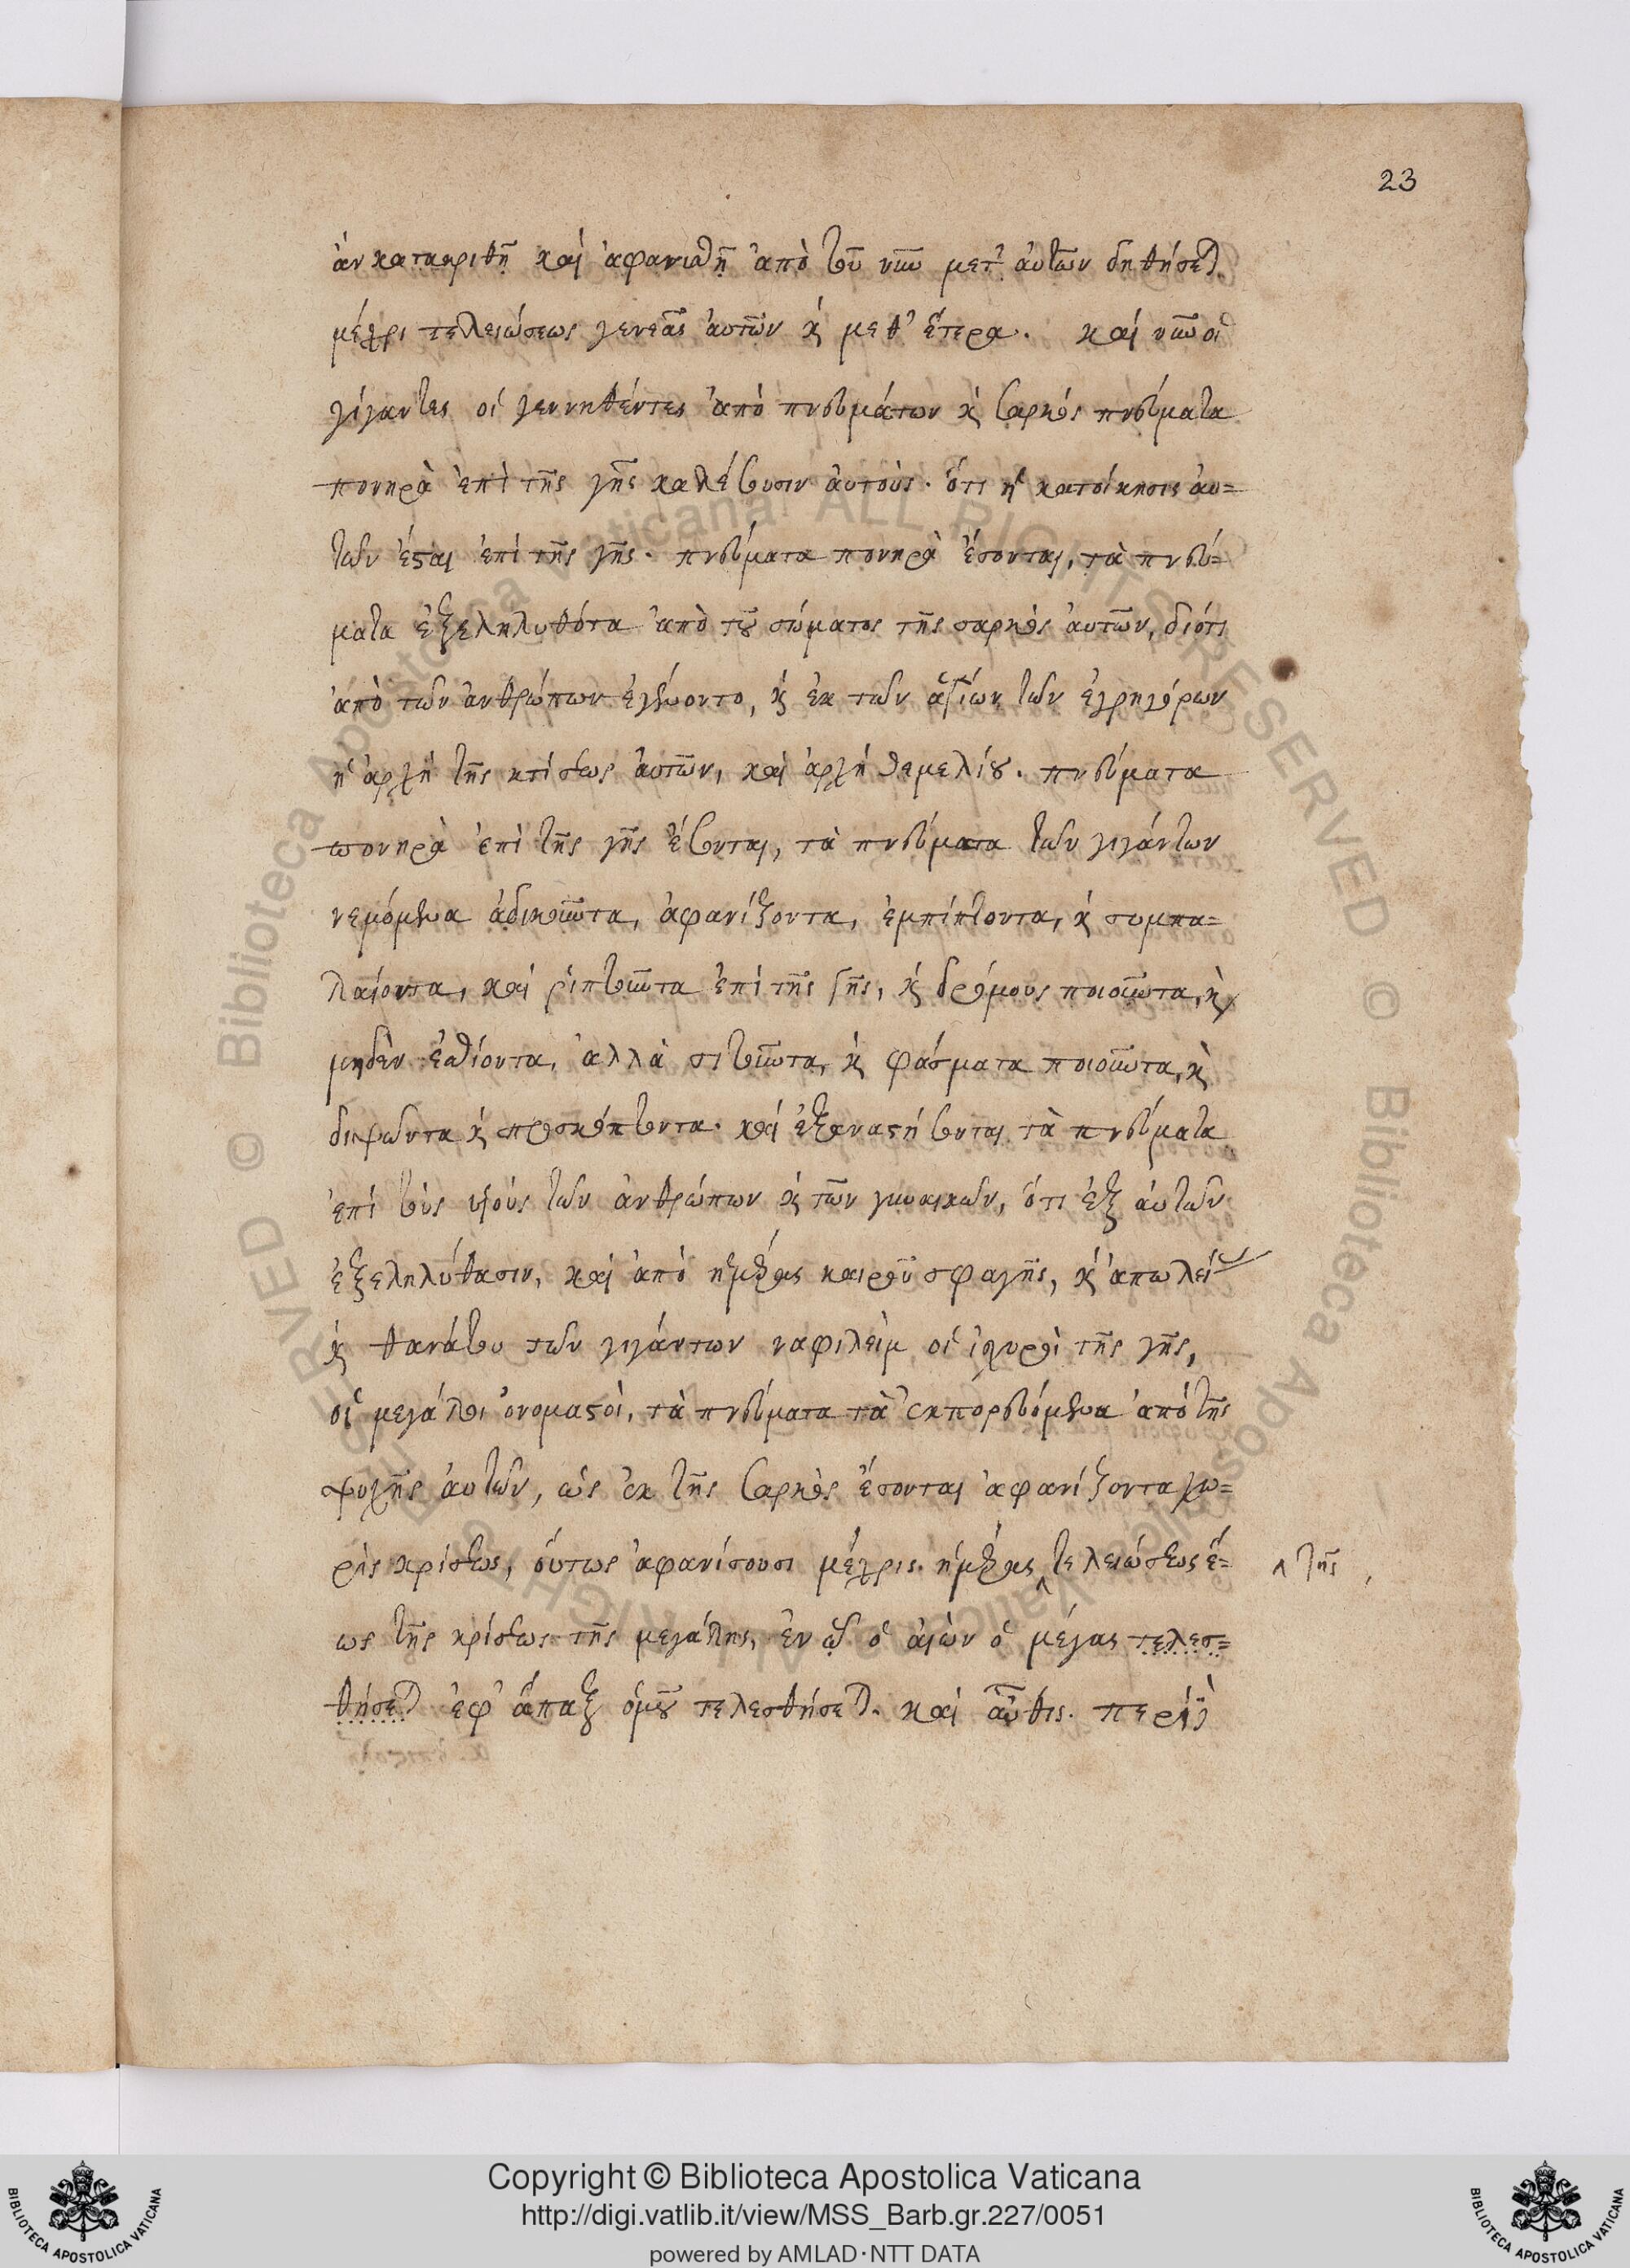 23
ἀν κατακριθῇ καὶ ἀφανισθῇ ἀπὸ τοῦ νῦν μετ' αὐτῶν δηθήσεται
μέχρι τελειώσεως γενεᾶς αὐτῶν κ̀ μεθ' ἕτερα. καὶ νῦν οἱ
γίγαντες οἱ γεννηθέντες ἀπὸ πνευμάτων κ̀ σαρκὸς πνεύματα
πονηρὰ ἐπὶ τῆς γῆς καλέσουσιν αὐτούς. ὅτι ἡ κατοίκησις αὐ=
τῶν ἔσται ἐπὶ τῆς γῆς. πνεύματα πονηρὰ ἔσονται, τὰ πνεύ=
ματα ἐξεληλυθότα ἀπὸ τοῦ σώματος τῆς σαρκὸς αὐτῶν, διότι
ἀπὸ τῶν ἀνθρώπων ἐγένοντο, κ̀ ἐκ τῶν ἁγίων τῶν ἐγρηγόρων
ἡ ἀρχὴ τῆς κτίσεως αὐτῶν, καὶ ἀρχὴ θεμελίου. πνεύματα
πονηρὰ ἐπὶ τῆς γῆς ἔσονται, τὰ πνεύματα τῶν γιγάντων
νεμόμενα ἀδικοῦντα, ἀφανίζοντα, ἐμπίπτοντα, κ̀ συμπα=
λαίοντα, καὶ ῥιπτοῦντα ἐπὶ τῆς γῆς, κ̀ δρόμους ποιοῦντα, κ̀
μηδὲν ἐσθίοντα, ἀλλὰ σιτοῦντα, κ̀ φάσματα ποιοῦντα, κ̀
διψῶντα κ̀ προσκόπτοντα. καὶ ἐξαναστήσονται τὰ πνεύματα
ἐπὶ τοὺς υἱοὺς τῶν ἀνθρώπων κ̀ τῶν γυναικῶν, ὅτι ἐξ αὐτῶν
ἐξεληλύθασιν, καὶ ἀπὸ ἡμέρας καιροῦ σφαγῆς, κ̀ ἀπωλείας
κ̀ θανάτου τῶν γιγάντων ναφιλεὶμ οἱ ἰσχυροὶ τῆς γῆς,
οἱ μεγάλοι ὀνομαστοὶ, τὰ πνεύματα τὰ ἐκπορευόμενα ἀπὸ τῆς
ψυχῆς αὐτῶν, ὡς ἐκ τῆς σαρκὸς ἔσονται ἀφανίζοντα χω=
ρὶς κρίσεως, οὕτως ἀφανίσουσι μέχρις ἡμέρας ‸ τελειώσεως ἕ=
‸ τῆς
ως τῆς κρίσεως τῆς μεγάλης, ἐν ᾧ ὁ αἰὼν ὁ μέγας τελεσ=
θήσεται ἐφ' ἅπαξ ὁμοῦ τελεσθήσεται. καὶ αὖθις. περὶ
Copyright © Biblioteca Apostolica Vaticana
http://digi.vatlib.it/view/MSS_Barb.gr.227/0051
powered by AMLAD·NTT DATA